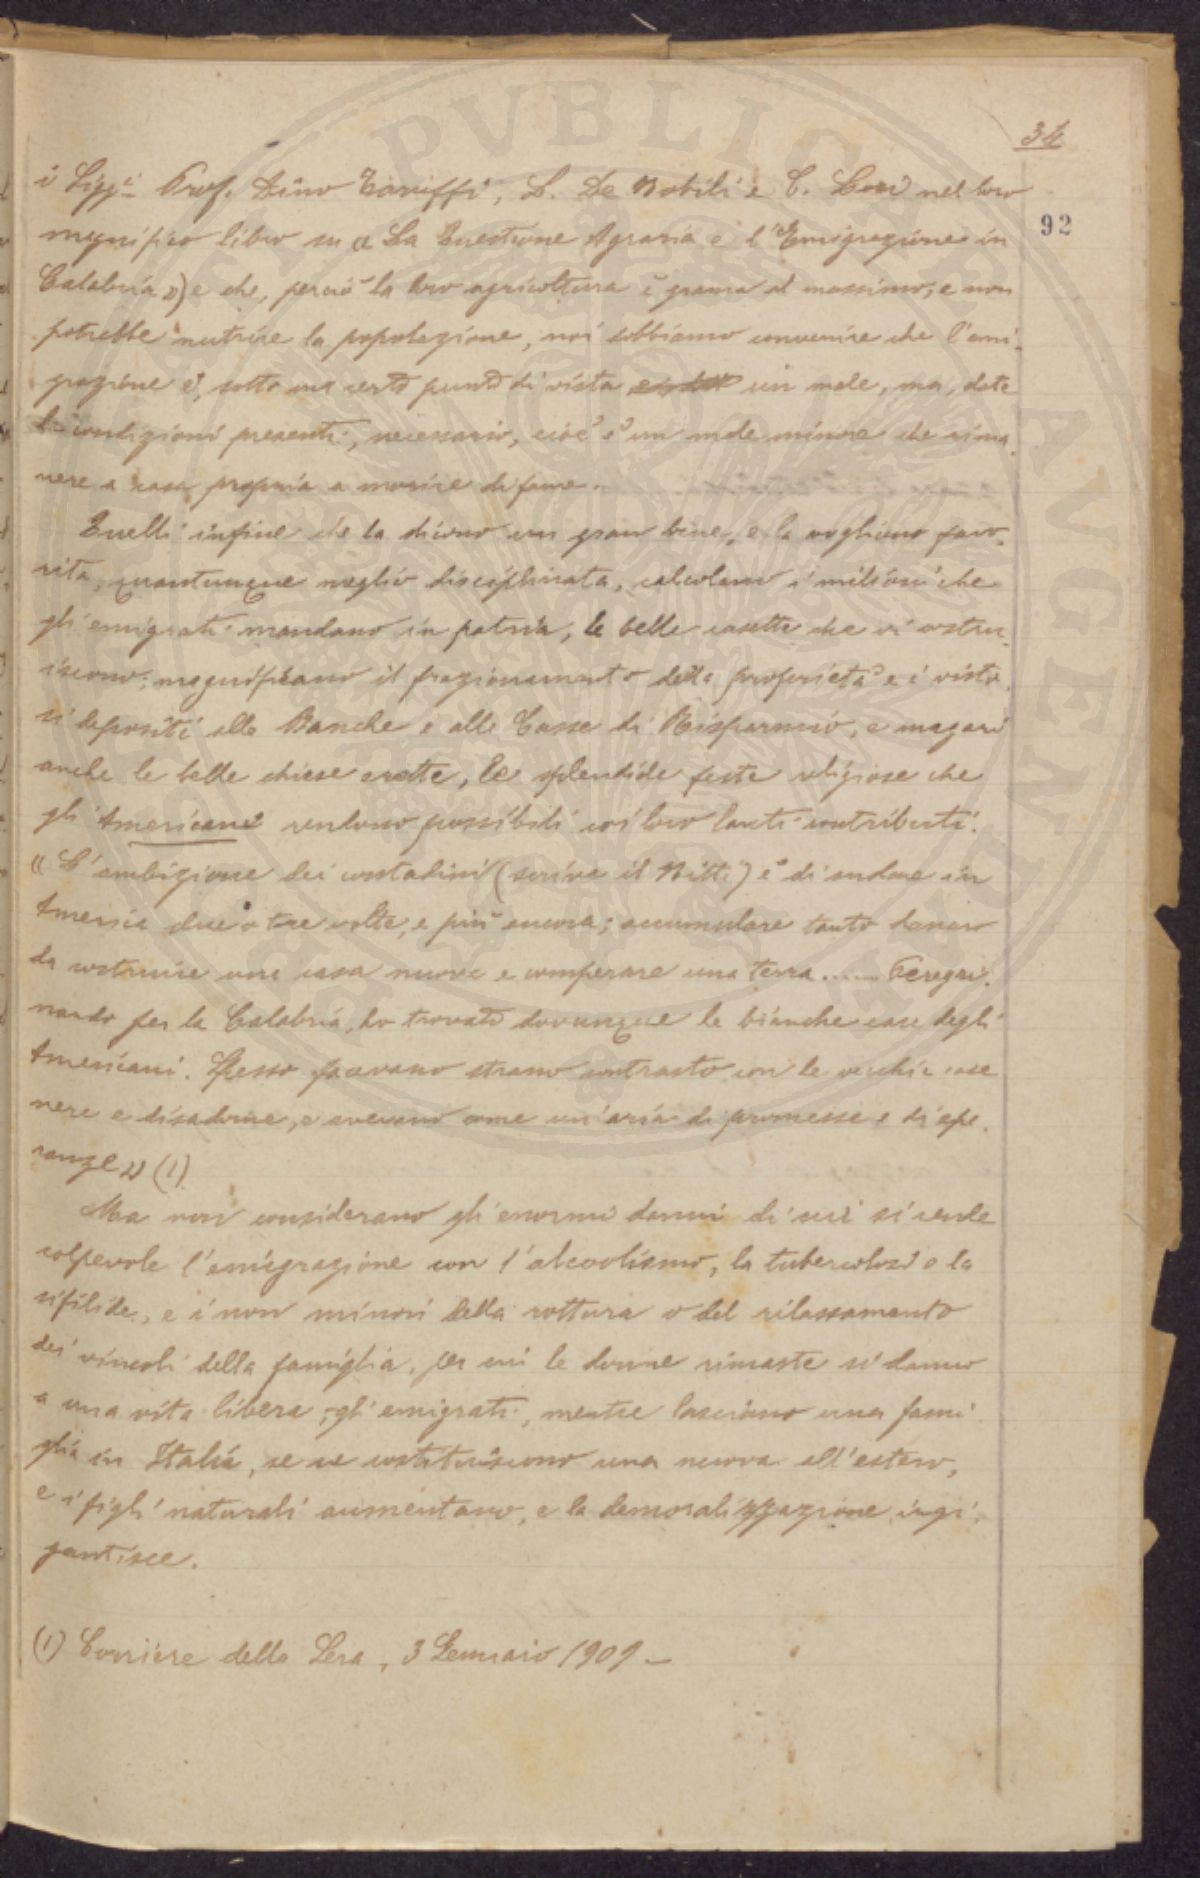 34
92
i Sigg.i Prof. Dino Taruffi, L. De Nobili e C. Lori nel loro
magnifico libro su « La Questione Agraria e l'Emigrazione in
Calabria ») e che, perciò la loro agricoltura è grama al massimo, e non
potrebbe nutrire la popolazione, noi dobbiamo convenire che l'emi-
grazione è, sotto un certo punto di vista un male, ma, date
le condizioni presenti, necessario, cioè è un male minore che rima-
nere a casa propria a morire di fame.
Quelli infine che la dicono un gran bene, e la vogliono favo-
rita, quantunque meglio disciplinata, calcolano i milioni che
gli emigrati mandano in patria, le belle casette che vi costrui-
scono; magnificano il frazionamento della proprietà e i visto-
si depositi alle Banche e alle Casse di Risparmio, e magari
anche le belle chiese erette, le splendide feste religiose che
gli Americani rendono possibili coi loro lauti contributi.
« L'ambizione dei contadini (scrive il Nitti) è di andare in
America due o tre volte, e più ancora; accumulare tanto denaro
da costruire una casa nuova e comperare una terra...... Peregri-
nando per la Calabria, ho trovato dovunque le bianche case degli
Americani. Spesso facevano strano contrasto con le vecchie case
nere e disadorne, e avevano come un'aria di promesse e di spe-
ranze » (1)
Ma non considerano gli enormi danni di cui si rende
colpevole l'emigrazione con l'alcoolismo, la tubercolosi o la
sifilide, e i non minori della rottura o del rilassamento
dei vincoli della famiglia, per cui le donne rimaste si danno
a una vita libera, gli emigrati, mentre lasciano una fami-
glia in Italia, se ne costituiscono una nuova all'estero,
e i figli naturali aumentano, e la demoralizzazione ingi-
gantisce.
(1) Corriere della Sera, 3 Gennaio 1909 –